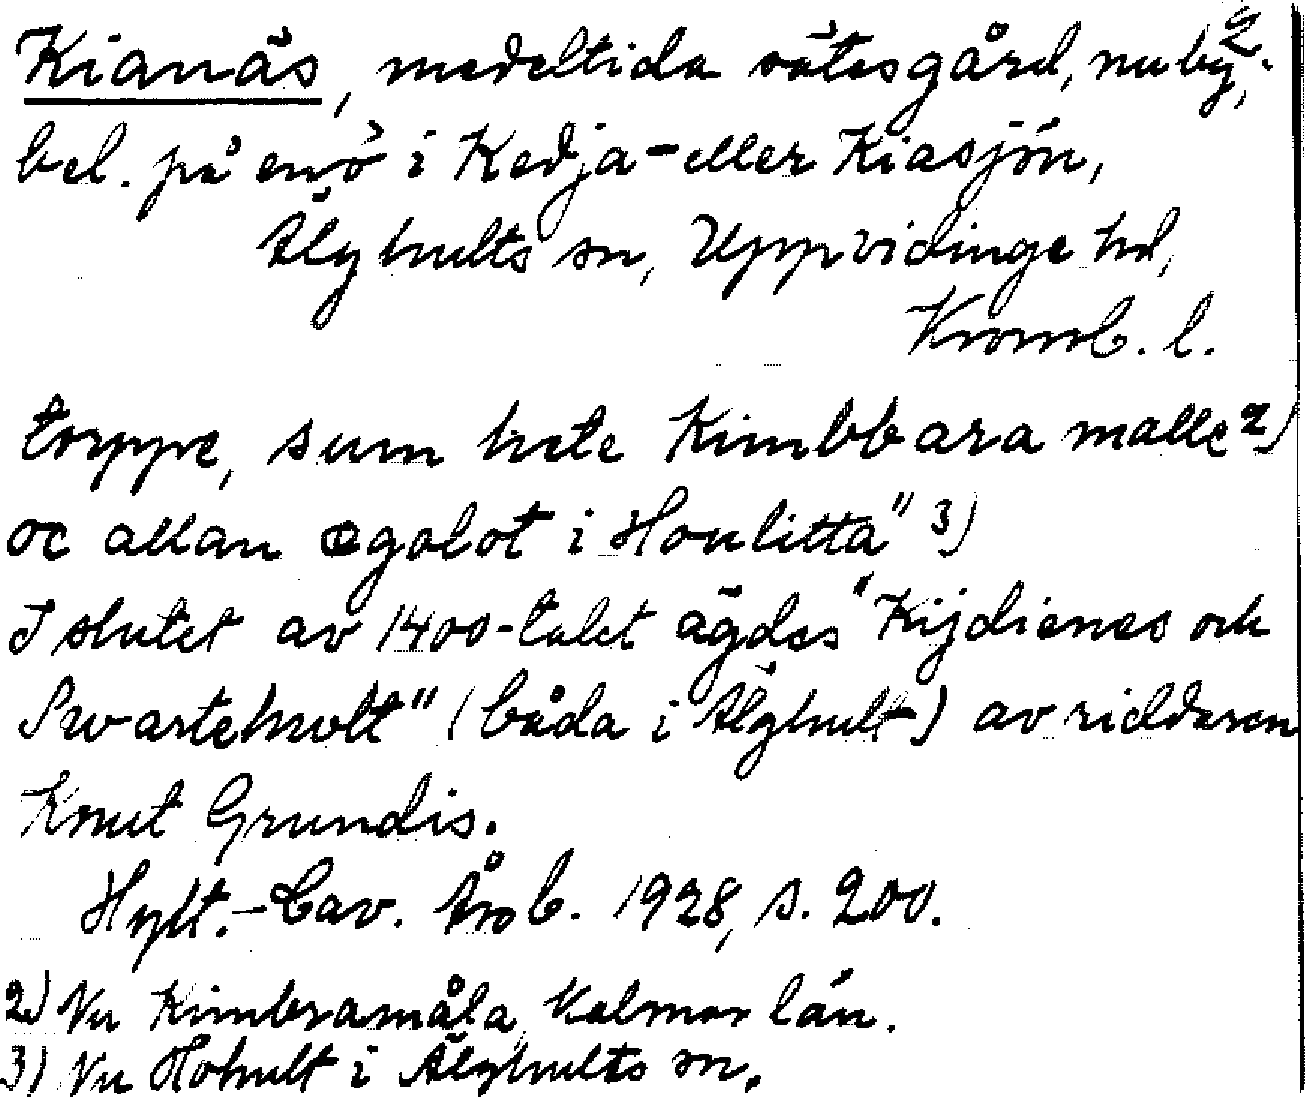 Kianäs, medeltida sätesgård, nu by, 2.
bel. på en ö i Kedja- eller Kiasjön,
Älghults sn, Uppvidinge hd,
Kronob. l.
torppe, sum hete Kimbbara malle 2)
oc allan ægolot i Houlitta" 3)
I slutet av 1400-talet ägdes "Kijdienes och
Swartehwlt" (båda i Älghult) av riddaren
Knut Grundis.
Hylt.-Cav. Årsb. 1928, s. 200.
2) Nu Kimbramåla, Kalmar län.
3) Nu Hohult i Älghults sn.